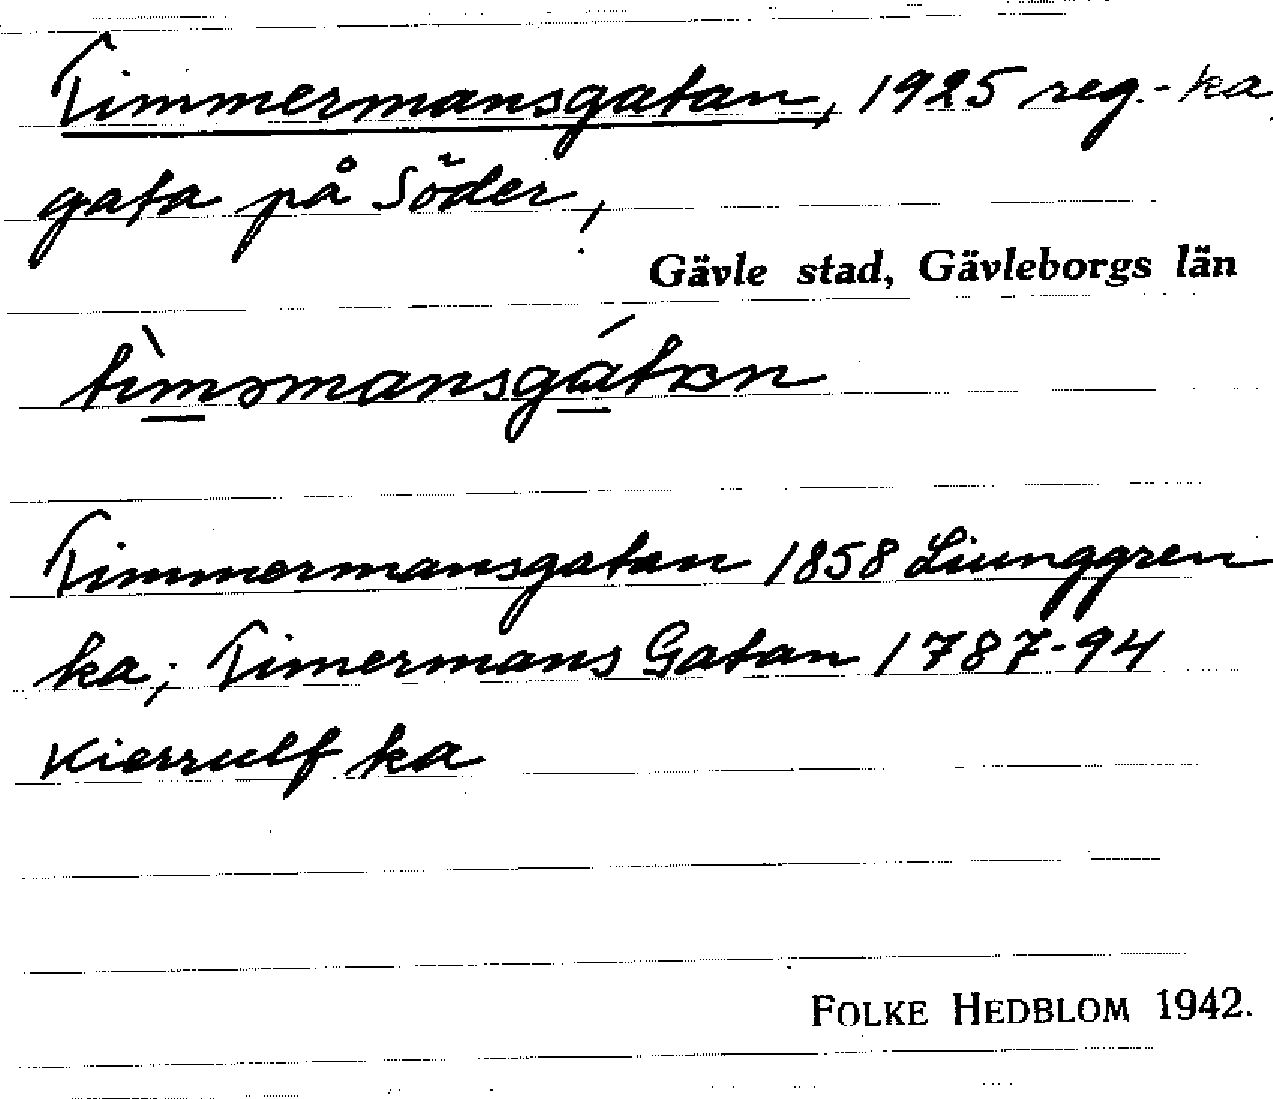 Timmermansgatan, 1925 reg.-ka
gata på Söder,
Gävle stad, Gävleborgs län
Timmermansgatan 1858 Ljunggren
ka; Timermans Gatan 1787-94
Kierrulf ka
FOLKE HEDBLOM 1942.